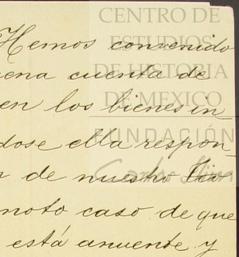 CENTRO DE
ESTUDIOS
DE HISTORIA
DE MÉXICO
FUNDACIÓN
Hemos convenido
ena cuenta de
en los bienes in
dose ella respon-
n de nuestro
moto caso de que
está anuente y